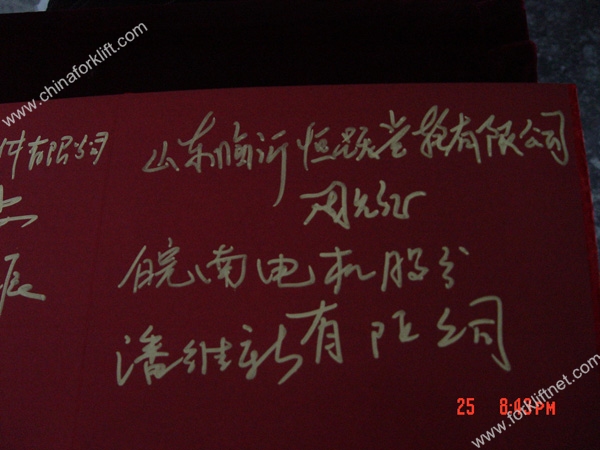 www.chinaforklift.com
件有限公司
山东临沂恒 有限公司
周
皖南电机股份
潘维新有限公司
25 8:43PM
www.forkliftnet.com